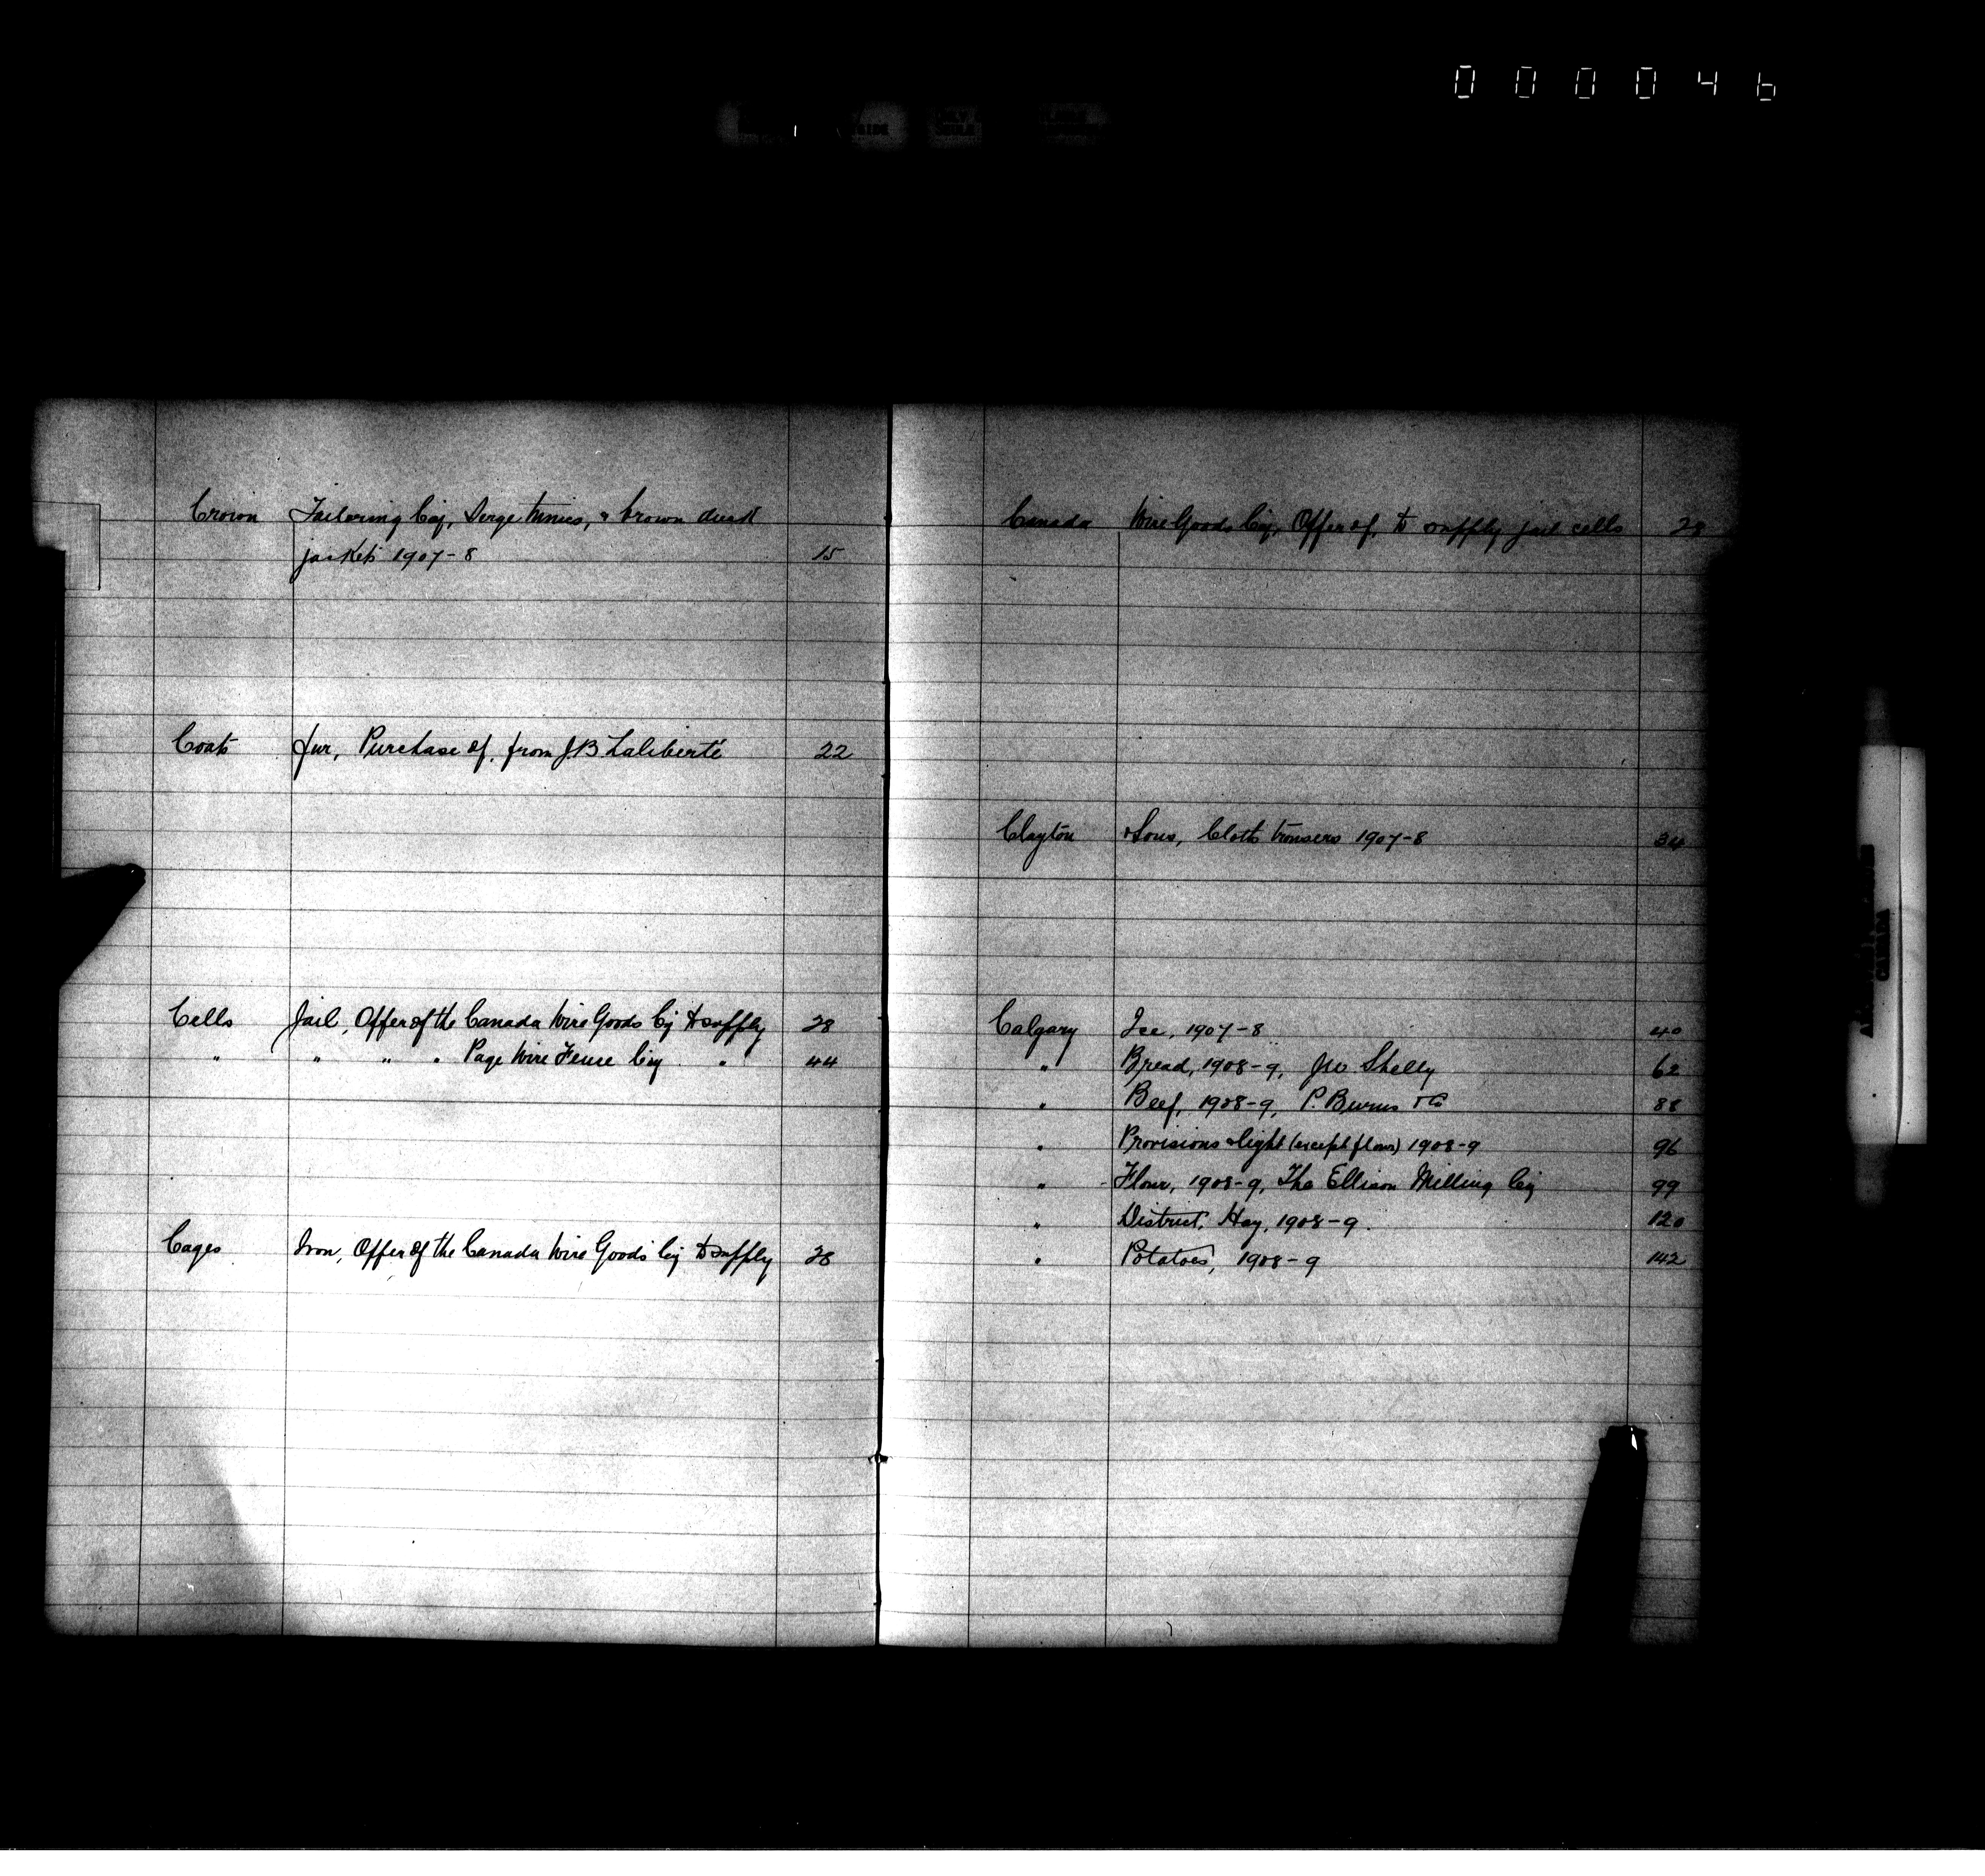 000046
Crown Tailoring Coy, Serge tunics, & brown duck
jackets 1907-8 15
Coats fur, Purchase of, from J.B. Laliberté 22
Cells Jail, Offer of the Canada Wire Goods Coy to supply 28
" " " " Page Wire Fence Coy " 44
Cages Iron, Offer of the Canada Wire Goods Coy to supply 28
Canada Wire Goods Coy, Offer of, to supply jail cells 28
Clayton & Sons, Cloth trousers 1907-8 34
Calgary Ice, 1907-8 40
" Bread, 1908-9, Shelly 62
" Beef, 1908-9, P. Burns & Co 88
" Provisions & light (except flour) 1908-9 96
" Flour, 1908-9, The Ellison Milling Coy 99
" District, Hay, 1908-9. 120
" Potatoes, 1908-9 142